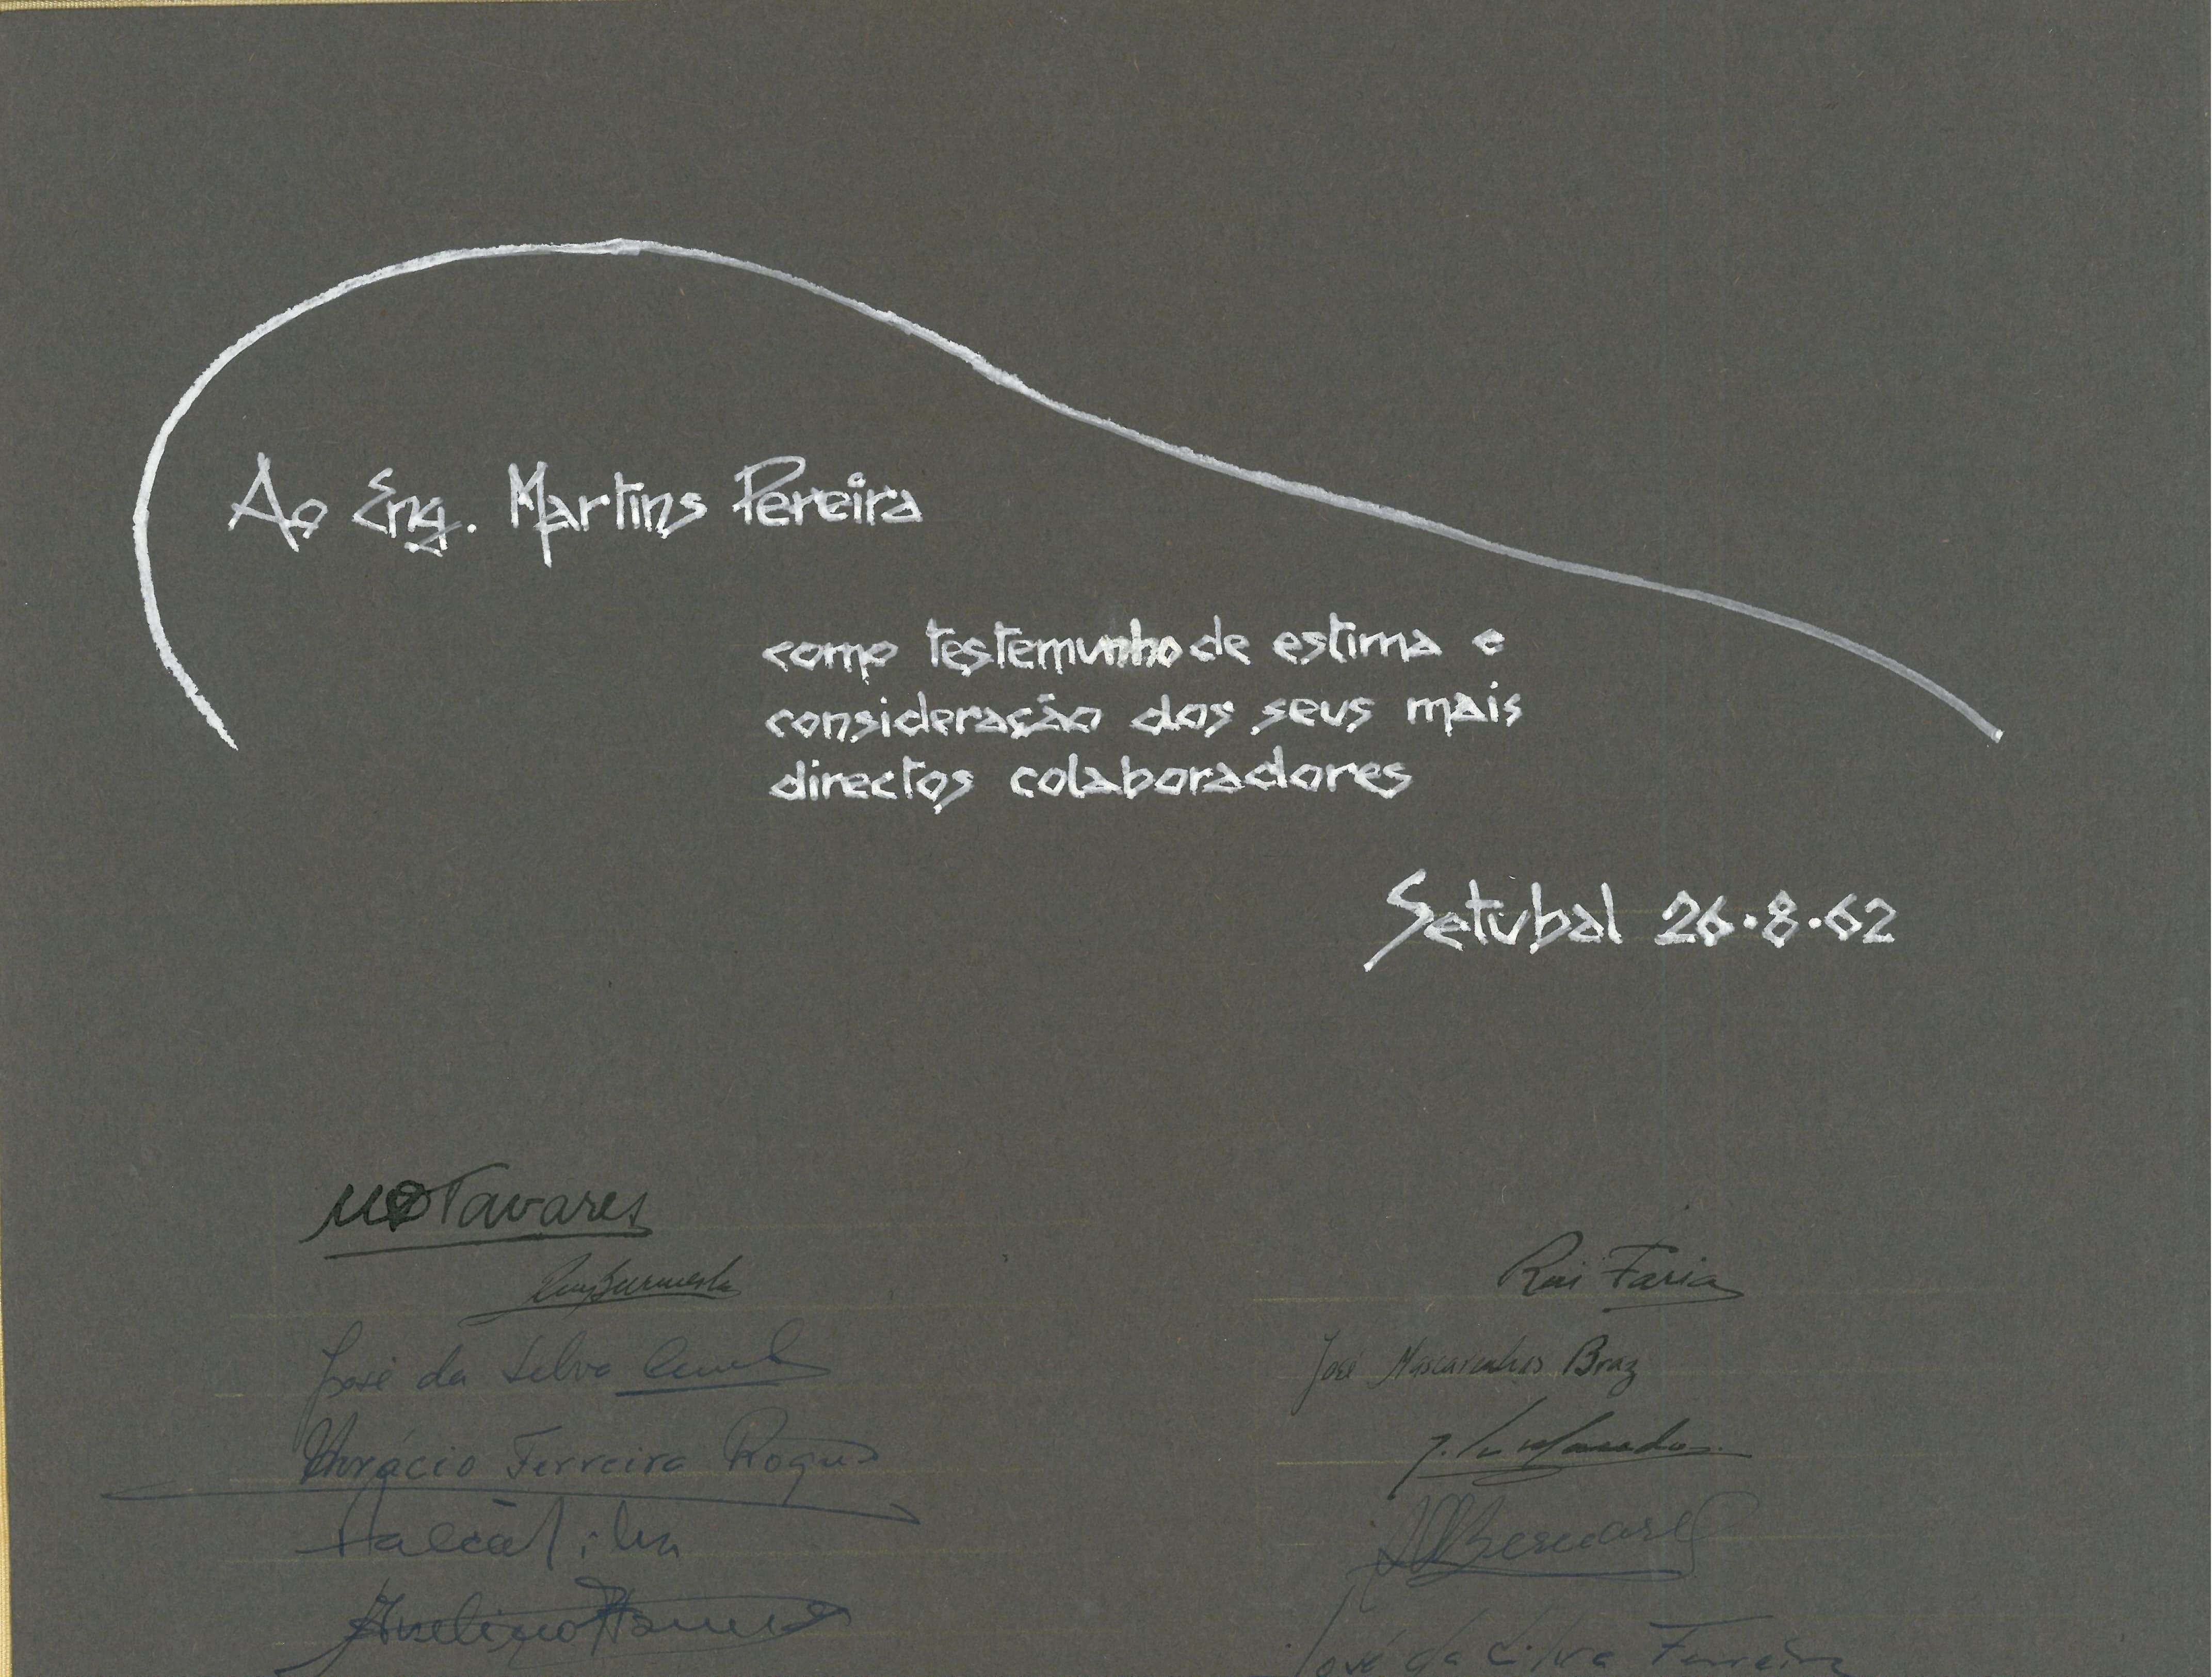 Ao Eng. Martins Pereira
como testemunho de estima e
consideração dos seus mais
directos colaboradores
Setubal 26.8.62
Tavares
Rui Faria
José da Silva
José Mascarenhas Braz
Horácio Ferreira Roque
Avelino
José da Silva Ferreira